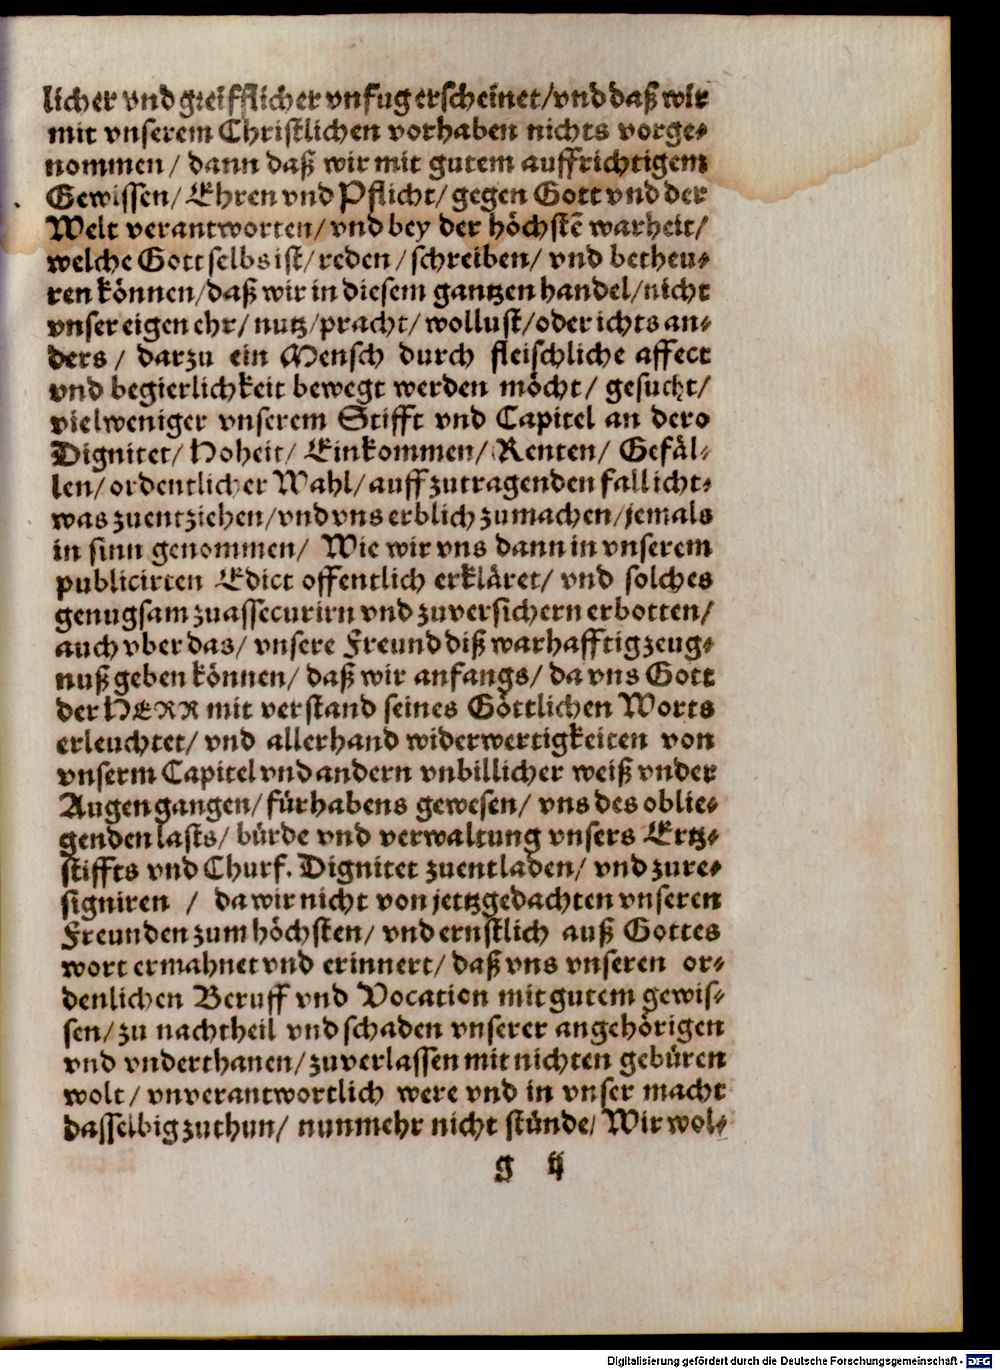 licher vnd greifflicher vnfug erscheinet/vnd daß wir
mit vnserem Christlichen vorhaben nichts vorge⸗
nommen / dann daß wir mit gutem auffrichtigem
Gewissen/ Ehren vnd Pflicht/ gegen Gott vnd der
Welt verantworten/ vnd bey der höchstē warheit/
welche Gott selbs ist/ reden / schreiben/ vnd betheu⸗
ren können/ daß wir in diesem gantzen handel/ nicht
vnser eigen ehr/ nutz/ pracht/ wollust/ oder ichts an⸗
ders / darzu ein Mensch durch fleischliche affect
vnd begierlichkeit bewegt werden möcht/ gesucht/
vielweniger vnserem Stifft vnd Capitel an dero
Dignitet/ Hoheit/ Einkommen/ Renten/ Gefäl⸗
len/ ordentlicher Wahl/ auff zutragenden fall icht⸗
was zuentziehen/ vnd vns erblich zumachen/ jemals
in sinn genommen/ Wie wir vns dann in vnserem
publicirten Edict offentlich erkläret/ vnd solches
genugsam zuassecurirn vnd zuversichern erbotten/
auch vber das/ vnsere Freund diß warhafftig zeug⸗
nuß geben können/ daß wir anfangs/ da vns Gott
der HERR mit verstand seines Göttlichen Worts
erleuchtet/ vnd allerhand widerwertigkeiten von
vnserm Capitel vnd andern vnbillicher weiß vnder
Augen gangen/ fürhabens gewesen/ vns des oblie⸗
genden lasts/ bürde vnd verwaltung vnsers Ertz⸗
stiffts vnd Churf. Dignitet zuentladen/ vnd zure⸗
signiren / da wir nicht von jetztgedachten vnseren
Freunden zum höchsten/ vnd ernstlich auß Gottes
wort ermahnet vnd erinnert/ daß vns vnseren or⸗
denlichen Beruff vnd Vocation mit gutem gewis⸗
sen/ zu nachtheil vnd schaden vnserer angehörigen
vnd vnderthanen/ zuverlassen mit nichten gebüren
wolt/ vnverantwortlich were vnd in vnser macht
dasselbig zuthun/ nunmehr nicht stünde/ Wir wol⸗
g ij
Digitalisierung gefördert durch die Deutsche Forschungsgemeinschaft - DFG